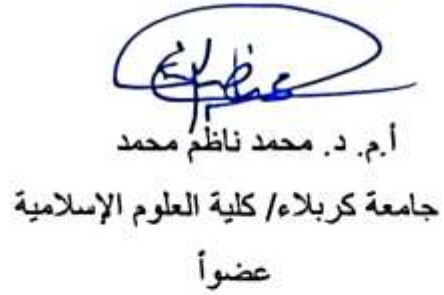 أ.م. د. محمد ناظم محمد
جامعة كربلاء/ كلية العلوم الإسلامية
عضواً